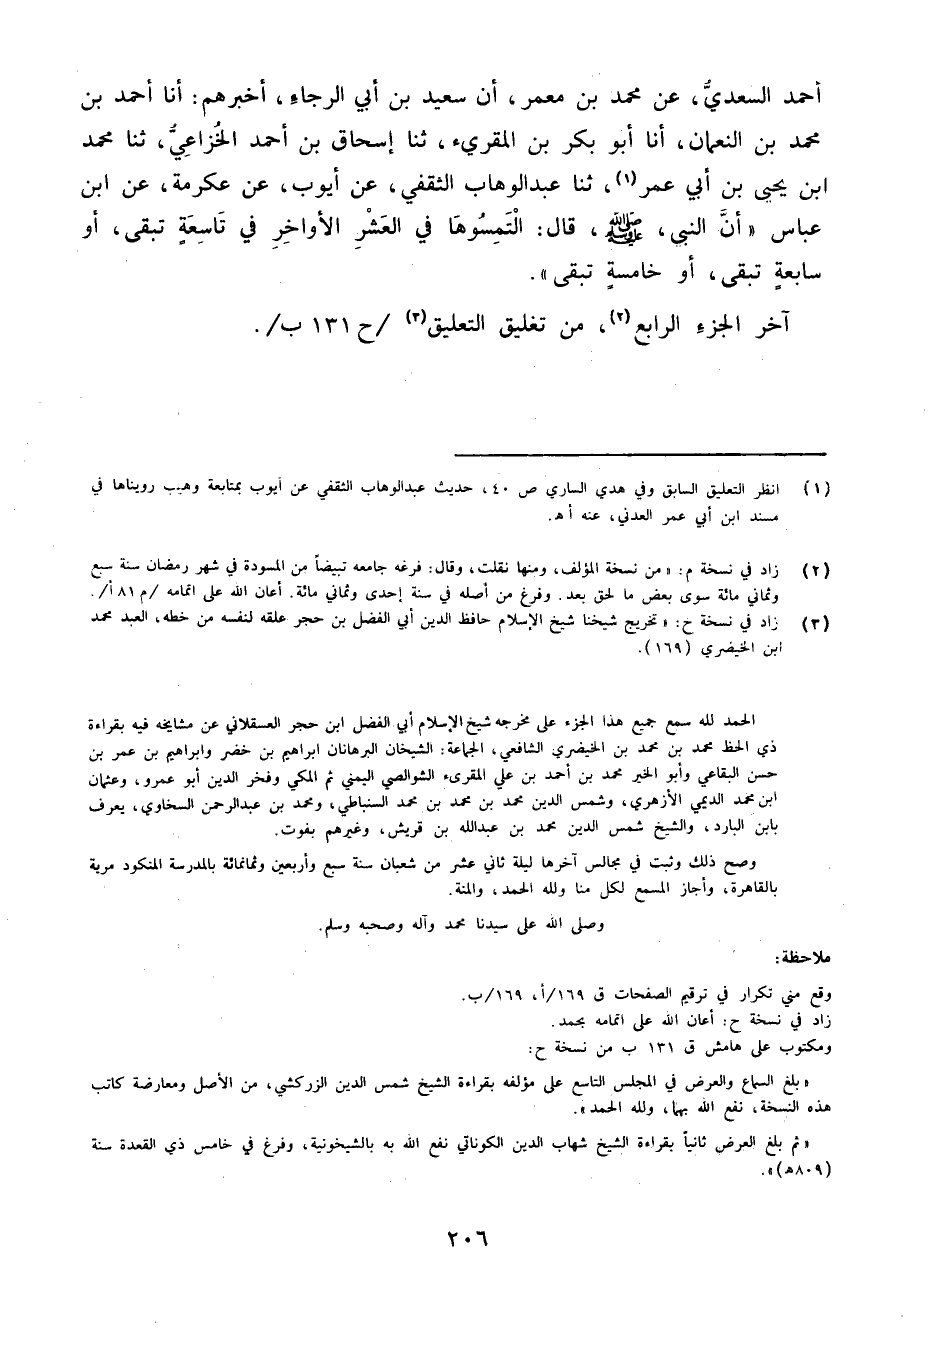 أحمد السعديُّ، عن محمد بن معمر، أن سعيد بن أبي الرجاء، أخبرهم: أنا أحمد بن
محمد بن النعمان، أنا أبو بكر بن المقريء، ثنا إسحاق بن أحمد الخُزاعِيُّ، ثنا محمد
ابن يحيى بن أبي عمر(١)، ثنا عبدالوهاب الثقفي، عن أيوب، عن عكرمة، عن ابن
عباس «أنَّ النبي، ﷺ، قال: الْتَمِسُوهَا في العَشْرِ الأواخِرِ في تَاسِعَةٍ تبقى، أو
سابعةٍ تبقى، أو خامسةٍ تبقى».
آخر الجزء الرابع(٢)، من تغليق التعليق(٣) /ح ١٣١ ب/.
(١) انظر التعليق السابق وفي هدي الساري ص ٤٠، حديث عبدالوهاب الثقفي عن أيوب بمتابعة وهيب رويناها في
مسند ابن أبي عمر العدني، عنه أ هـ.
(٢) زاد في نسخة م: «من نسخة المؤلف، ومنها نقلت، وقال: فرغه جامعه تبيضاً من المسودة في شهر رمضان سنة سبع
وثماني مائة سوى بعض ما لحق بعد. وفرغ من أصله في سنة إحدى وثماني مائة. أعان الله على اتمامه /م ٨١ أ/.
(٣) زاد في نسخة خ: «تخريج شيخنا شيخ الإسلام حافظ الدين أبي الفضل بن حجر علقه لنفسه من خطه، العبد محمد
ابن الخيضري (١٦٩).
الحمد لله سمع جميع هذا الجزء على مخرجه شيخ الإسلام أبي الفضل ابن حجر العسقلاني عن مشايخه فيه بقراءة
ذي الحظ محمد بن محمد بن الخيضري الشافعي، الجماعة: الشيخان البرهانان ابراهيم بن خضر وابراهيم بن عمر بن
حسن البقاعي وأبو الخير محمد بن أحمد بن علي المقرىء الشوالصي اليمني ثم المكي وفخر الدين أبو عمرو، وعثمان
ابن محمد الديمي الأزهري، وشمس الدين محمد بن محمد بن محمد السنباطي، ومحمد بن عبدالرحمن السخاوي، يعرف
بابن البارد، والشيخ شمس الدين محمد بن عبدالله بن قريش، وغيرهم بفوت.
وصح ذلك وثبت في مجالس آخرها ليلة ثاني عشر من شعبان سنة سبع وأربعين وثمانمائة بالمدرسة المنكود مرية
بالقاهرة، وأجاز المسمع لكل منا ولله الحمد، والمنة.
وصلى الله على سيدنا محمد وآله وصحبه وسلم.
ملاحظة:
وقع مني تكرار في ترقيم الصفحات ق ١٦٩/أ، ١٦٩/ب.
زاد في نسخة ح: أعان الله على اتمامه بحمد.
ومكتوب على هامش ق ١٣١ ب من نسخة ح:
«بلغ السماع والعرض في المجلس التاسع على مؤلفه بقراءة الشيخ شمس الدين الزركشي، من الأصل ومعارضة كاتب
هذه النسخة، نفع الله بهما، ولله الحمد».
«ثم بلغ العرض ثانياً بقراءة الشيخ شهاب الدين الكوناتي نفع الله به بالشيخونية، وفرغ في خامس ذي القعدة سنة
(٨٠٩هـ)».
٢٠٦